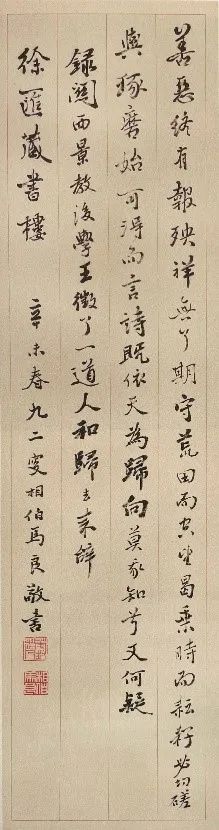 善惡終有報殃祥無了期守荒田而空望曷乘時而耘耔必切磋
與琢磨始可得而言詩既依天為歸向莫我知兮又何疑
錄關西景教後學王徵了一道人和歸去來辭
徐匯藏書樓 辛未春九二叟相伯馬良敬書